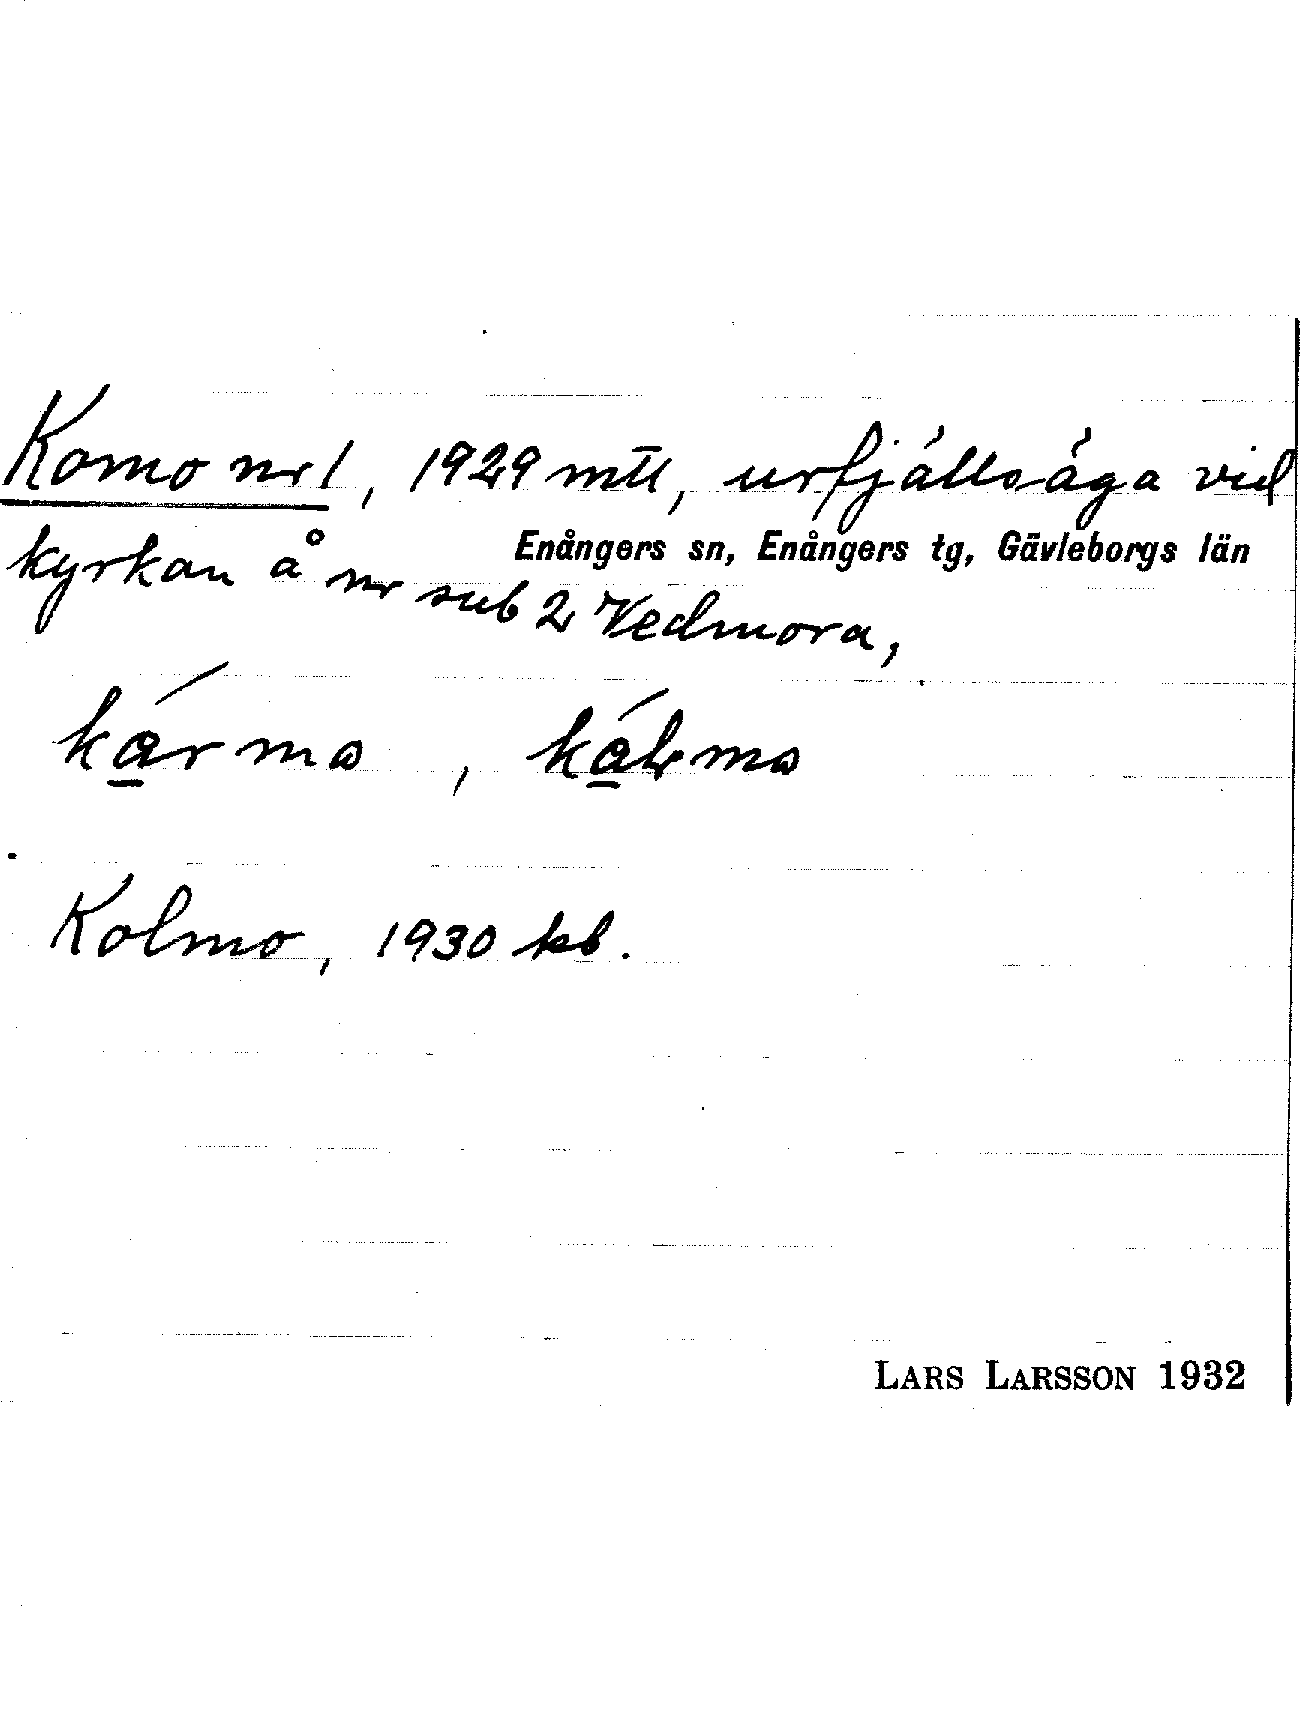 Komo nr 1, 1929 mtl, urfjällsäga vid
Enångers sn, Enångers tg, Gävleborgs län
kyrkan å nr sub 2 Vedmora,
kármo, kálmo
Kolmo, 1930 kb.
LARS LARSSON 1932